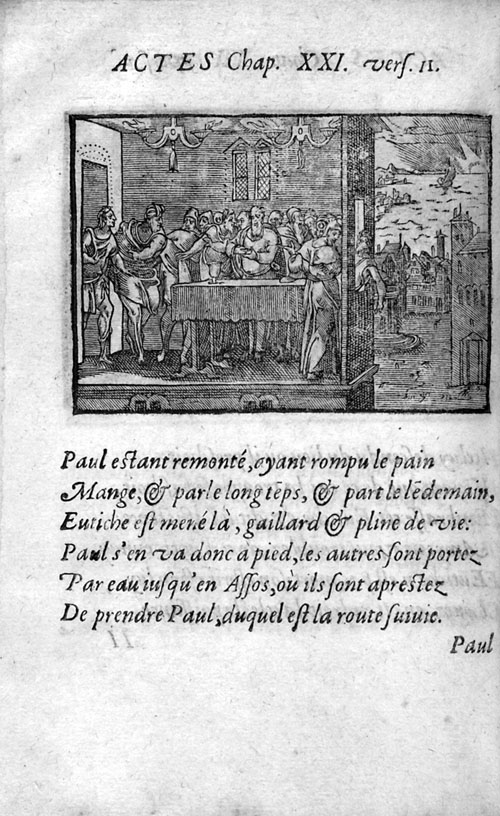 ACTES Chap. XXI. vers. 11.
Paul estant remonté, ayant rompu le pain
Mange, & parle long tẽps, & part le lẽdemain,
Eutiche est mené là, gaillard & pline de vie:
Paul s'en va donc à pied, les autres sont portez
Par eau iusqu'en Assos, où ils sont aprestez
De prendre Paul, duquel est la route suivie.
Paul